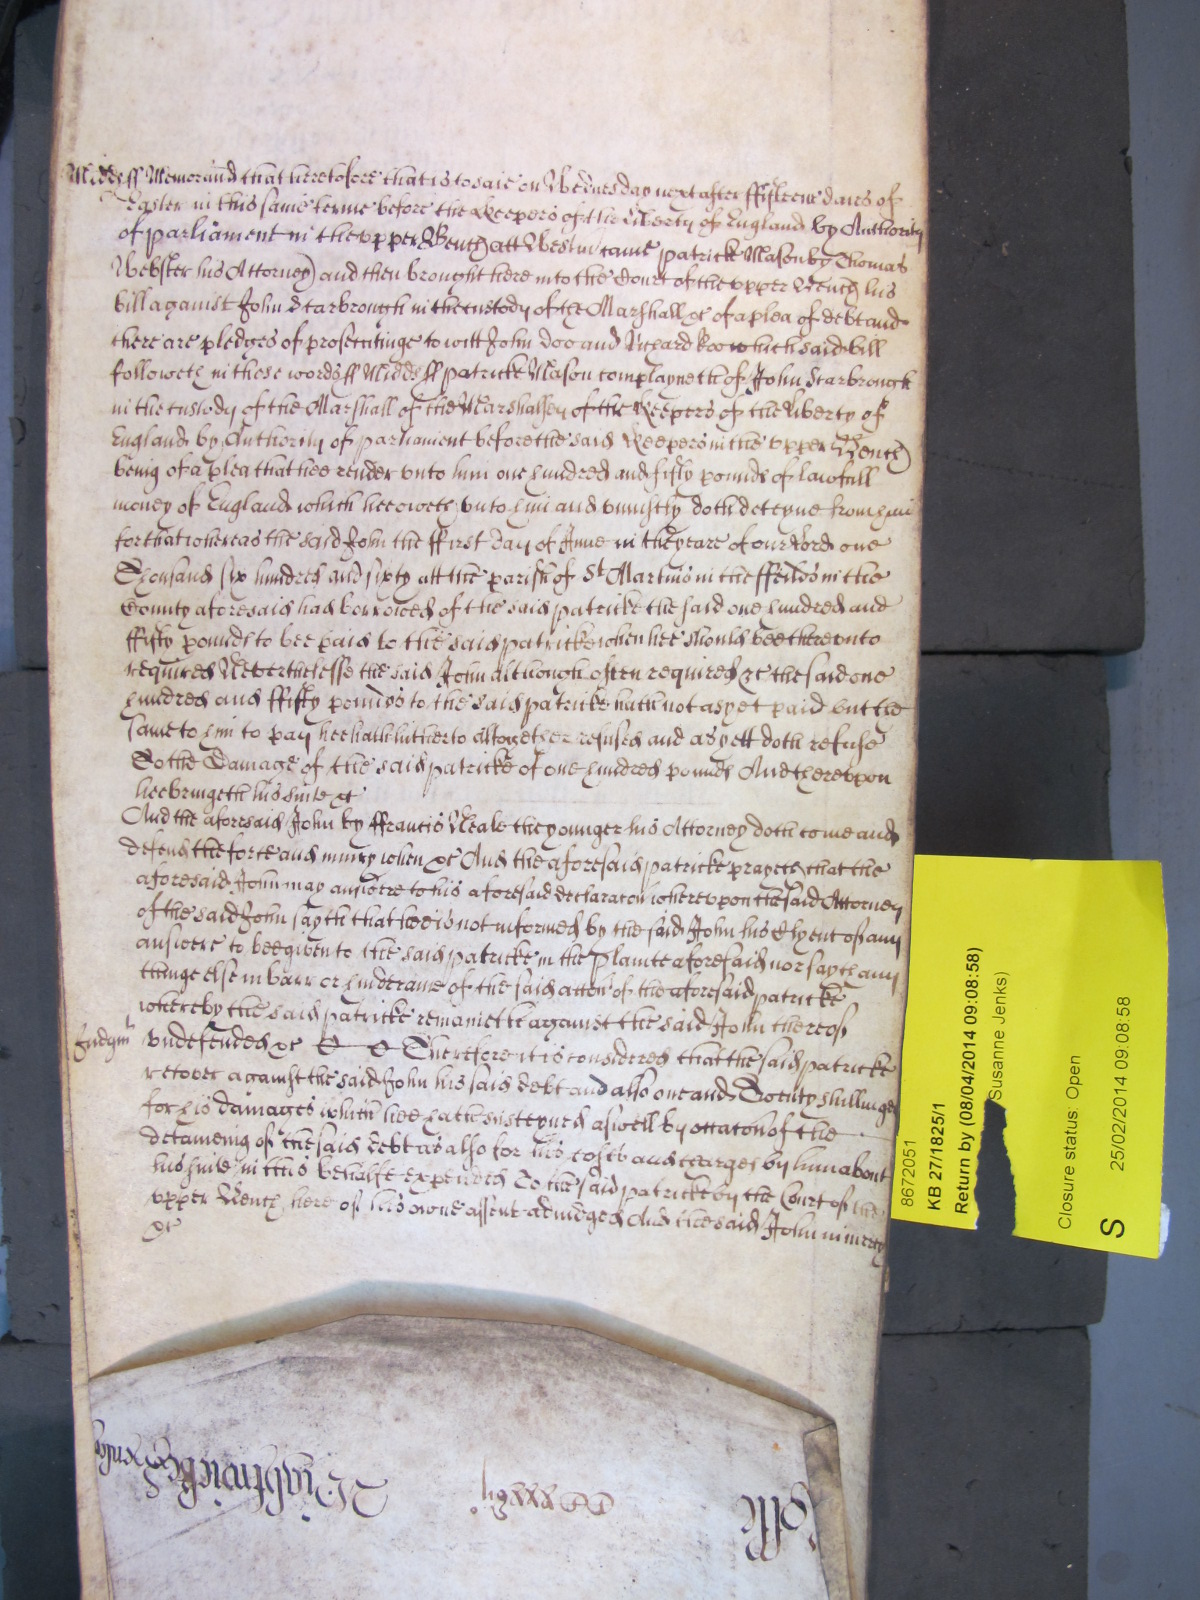 Midds ss Memorand that heretofore that is to saie on Wednesday next after ffifteene daies of
Easter in this same terme before the Keepers of the Liberty of England by Authority
of parliament in the upper Bench att Westm came patrick Mason by Thomas
Webster his Attorney and then brought here into the Court of the upper Bench his
bill against John Scarbrough in the custody of the Marshall &c of a plea of debt and
there are pledges of prosecutinge to witt John Doo and Richard Roo which said bill
followeth in these words ss Midds ss Patricke Mason complayneth of John Scarbrough
in the custody of the Marshall of the Marshalsey of the Keepers of the liberty of
England by Authority of parliament before the said Keepers in the upper Bench
being of a plea that hee render unto him one hundred and fifty pounds of lawfull
money of England which hee oweth unto him and uniustly doth deteyne from him
for that whereas the said John the ffirst day of June in the yeare of our Lord one
Thousand six hundred and sixty att the parish of St Martins in the ffeilds in the
County aforesaid had borrowed of the said patricke the said one hundred and
ffifty pounds to bee paid to the said patricke when hee should bee thereunto
required Neverthelesse the said John although often required &c the said one
hundred and ffifty pounds to the said patricke hath not as yet paid but the
same to him to pay hee hath hitherto altogether refused and as yett doth refuse
To the Damage of the said patricke of one hundred pounds And thereupon
hee bringeth his suite &c
And the aforesaid John by ffrancis Neale the younger his Attorney doth come and
defend the force and iniury when &c And the aforesaid patricke prayeth that the
aforesaid John may answere to his aforesaid declaracon whereupon the said Attorney
of the said John sayth that hee is not informed by the said John his Clyent of any
answere to bee given to the said patricke in the plainte aforesaid nor sayth any
thinge else in barr or hinderance of the said accon of the aforesaid patricke
whereby the said patricke remaineth against the said John thereof
Judgmt undefended &c Therefore it is considered that the said patricke
recover against the said John his said debt and also one and Twenty shillings
for his damages which hee hath susteyned aswell by occacon of the
detaineing of the said debt as also for his costs and charges by him about
his suite in this behalfe expended To the said patricke by the Court of the
upper Bench here of his owne assent adiudged And the said John in mercy
&c
8672051
KB 27/1825/1
Return by (08/04/2014 09:08:58)
Susanne Jenks)
Closure status: Open
S
25/02/2014 09:08:58